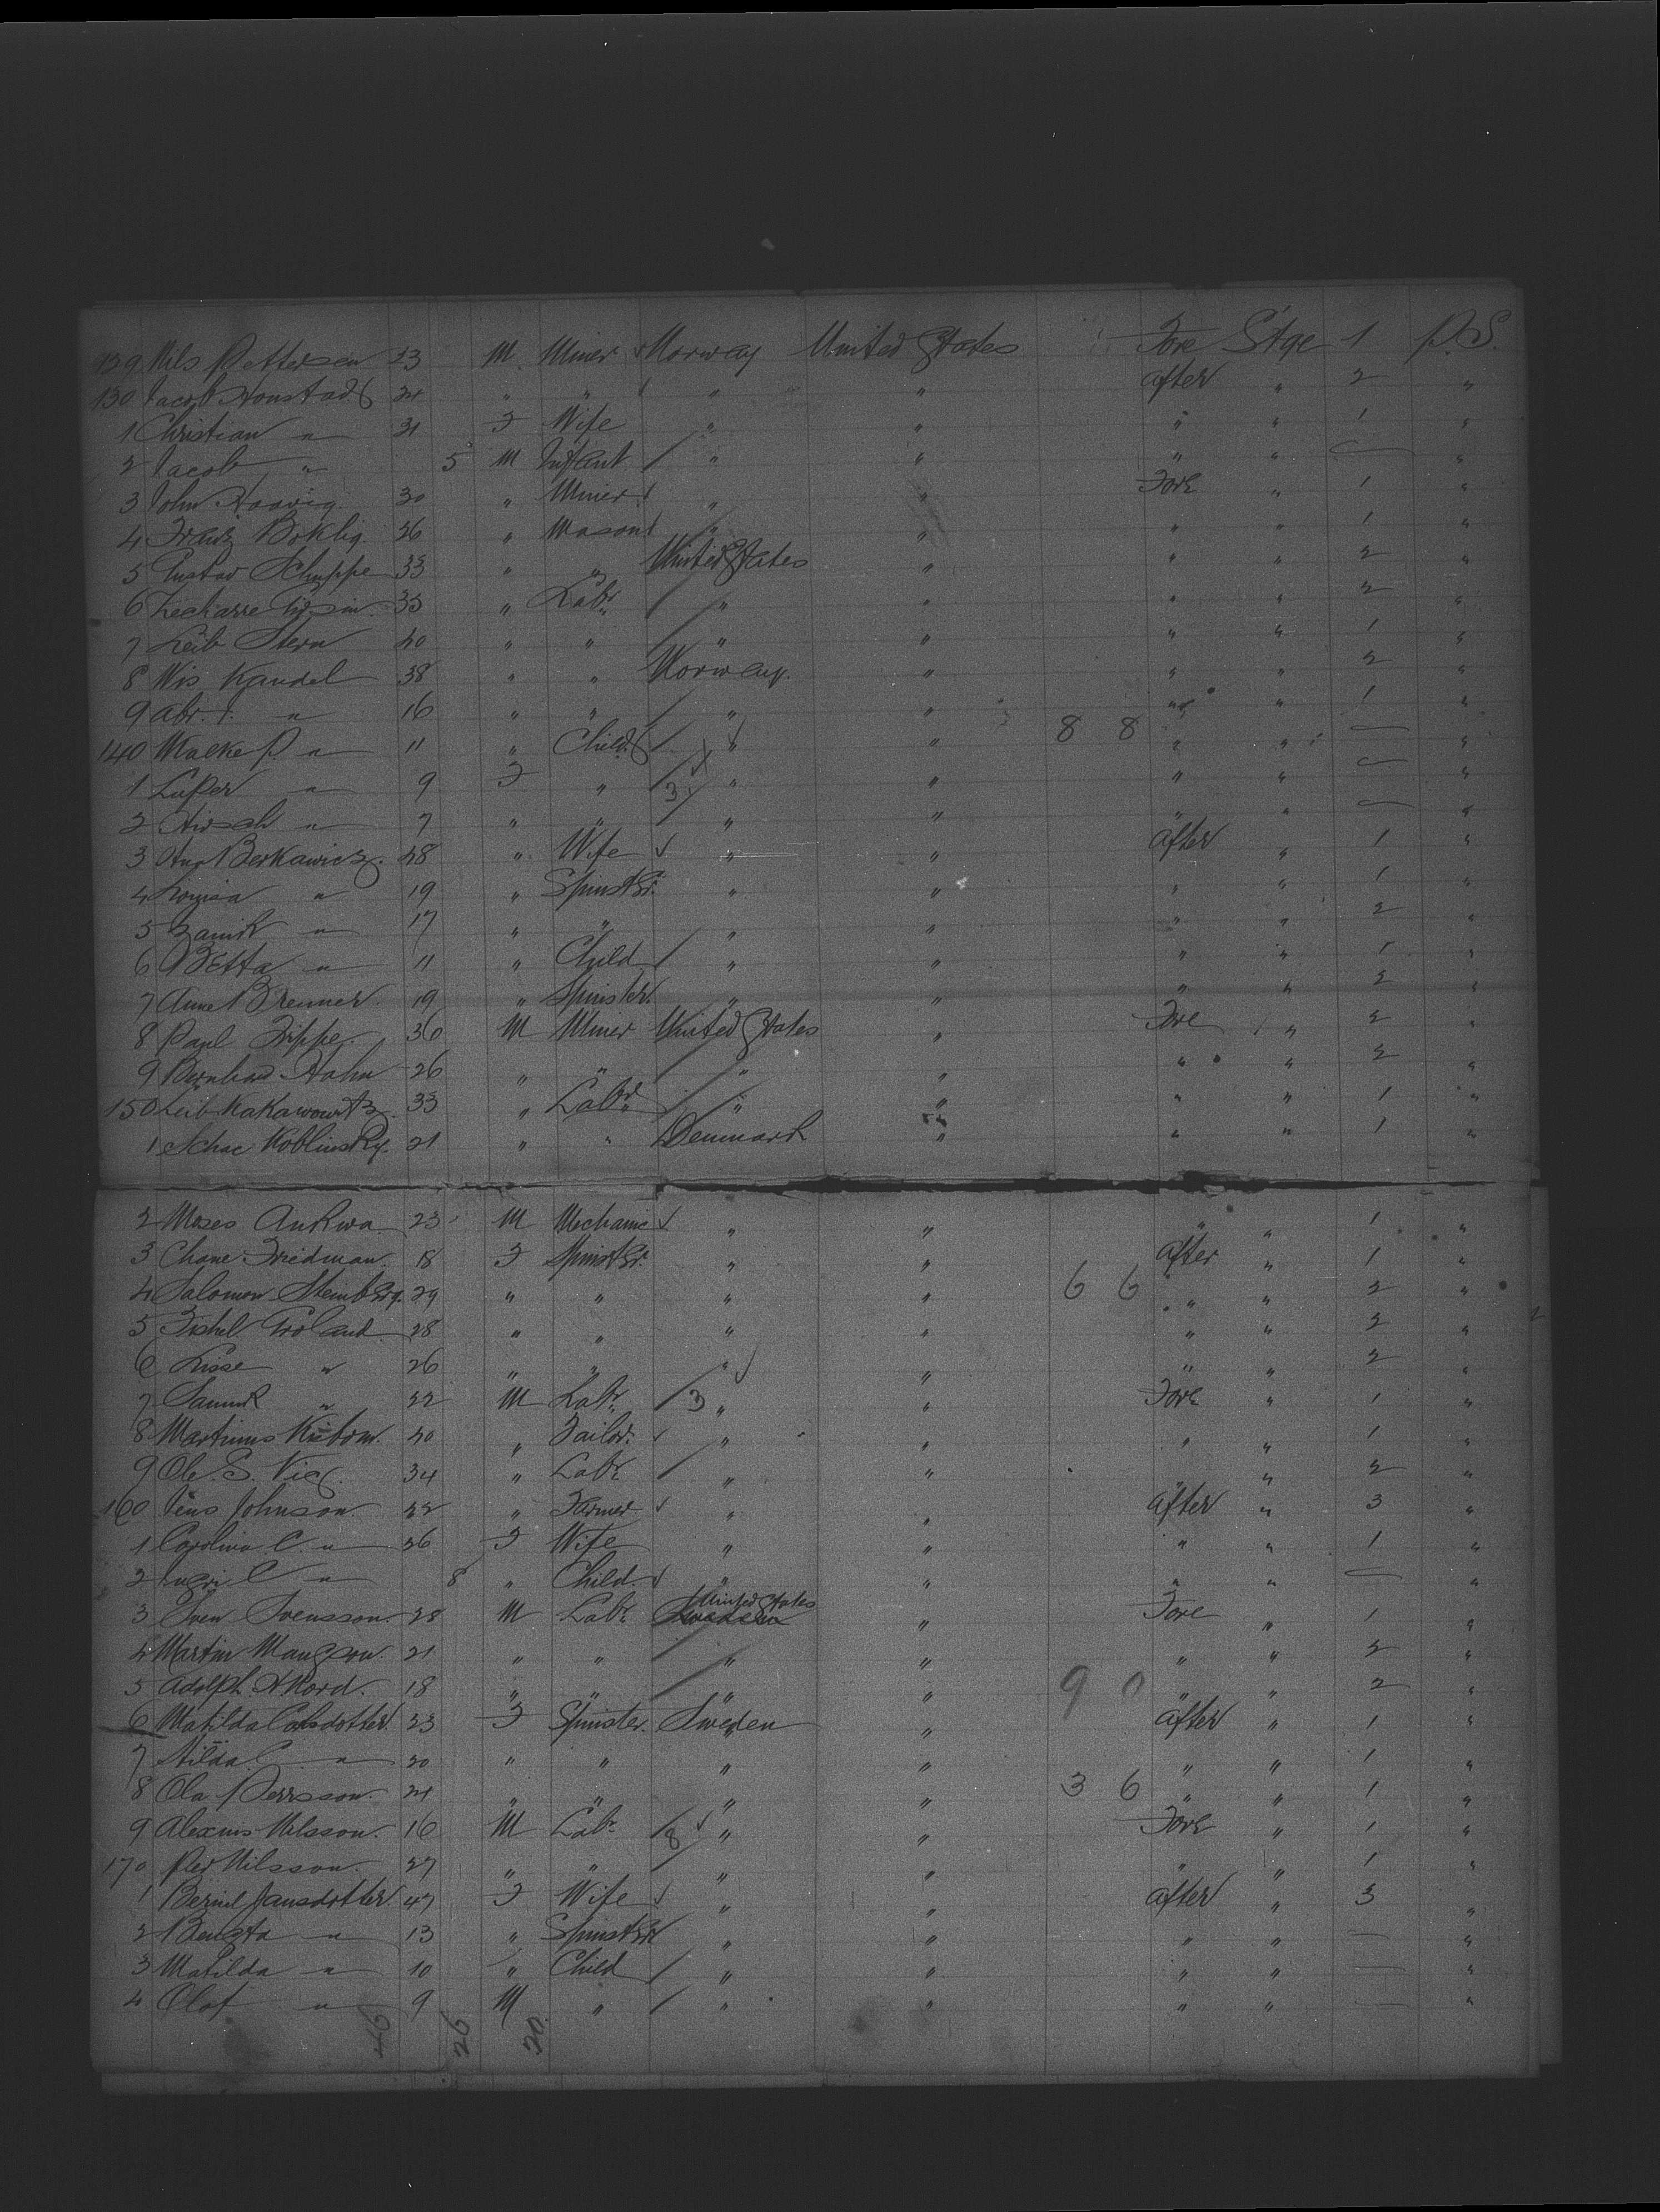 129 Nils Pettersen 23 M. Miner Norway United States Fore Stge 1 P.S.
130 Jacob Honstad 24 " " " " after " 2 "
1 Christian " 31 F Wife " " " " 1 "
2 Jacob " 5 M Infant " " " " — "
3 John 30 " Miner " " Fore " 1 "
4 Franz 26 " Mason " " " " 1 "
5 Gustav Schuppe 33 " " United States " " " 2 "
6 33 " Labr " " " " 2 "
7 Leib Stern 40 " " " " " " 1 "
8 Wis Kandel 38 " " Norway. " " " 2 "
9 Abr. " 16 " " " " " " 1 "
140 " 11 " Child " " 8 8 " " — "
1 " 9 F " 3 " " " " — "
2 Hirsch " 7 " " " " " " — "
3 Berkawicz. 48 " Wife " " after " 1 "
4 Louisa " 19 " Spinstr. " " " " 1 "
5 " 17 " " " " " " 2 "
6 Betta " 11 " Child " " " " 1 "
7 Anne Brenner. 19 " Spinster. " " " " 2 "
8 Paul Zippe. 36 M Miner United States " Fore " 2 "
9 Bernhard Hahn 26 " " " " " " 2 "
150 Leib Kakawowitz. 33 " Labr " " " " 1 "
1 Schae Koblinsky. 21 " " Denmark " " " 1 "
2 Moses 23 M Mechanic " " " " 1 "
3 Chane Friedman. 18 F Spinstr. " " after " 1 "
4 Salomon Steinberg. 29 " " " " 6 6 " " 2 "
5 28 " " " " " " 2 "
6 Lisse " 26 " " " " " " 2 "
7 " 22 M Labr 3 " " Fore " 1 "
8 Martinus 40 " Tailor. " " " " 1 "
9 Ole. S. 34 " Labr " " " 2 "
160 Jens Johnson. 32 " Farmer " " after " 3 "
1 Carolina C. " 26 F Wife " " " " 1 "
2 C " 8 " Child. " " " " — "
3 Sven Svensson. 28 M Labr Sweden United States " Fore " 1 "
4 Martin 21 " " " " " " 2 "
5 Adolph 18 " " " " 9 0 " " 2 "
6 Matilda 23 F Spinster. Sweden " after " 1 "
7 Hilda C. " 20 " " " " " " 1 "
8 Ola Persson. 24 " " " " 3 6 " " 1 "
9 Nilsson. 16 M Labr 8 " " Fore " 1 "
170 Per Nilsson. 27 " " " " " " 1 "
1 Jansdotter 47 F Wife " " after " 3 "
2 Bengta " 13 " Spinstr " " " " — "
3 Matilda " 10 " Child " " " " — "
4 Olof " 9 M " " " " " — "